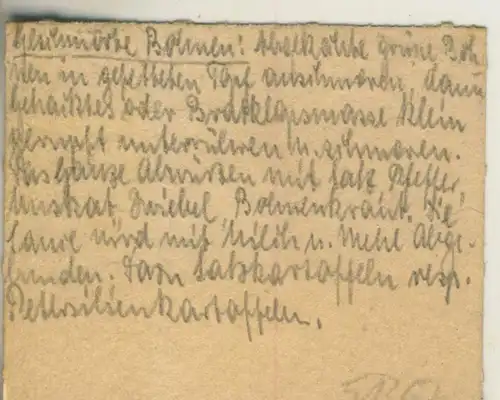 Geschmorte Bohnen: Abgekochte grüne Boh
nen in gefetteten Topf anschmoren, dann
gehacktes oder Bratklopsmasse klein
gerupft unterrühren u. schmoren.
Das Ganze Abwürzen mit Salz Pfeffer,
Muskat Zwiebel, Bohnenkraut. Die
Sauce wird mit Milch u. Mehl Abge-
bunden. Dazu Salzkartoffeln resp.
Petersilienkartoffeln.